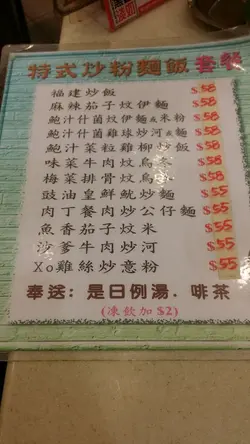 特式炒粉麵飯套餐
福建炒飯 $58
麻辣茄子炆伊麵 $58
鮑汁什菌炆伊麵&米粉 $58
鮑汁什菌雞球炒河&麵 $58
鮑汁菜粒雞柳炒飯 $58
味菜牛肉炆烏冬 $58
梅菜排骨炆烏冬 $58
豉油皇鮮魷炒麵 $55
肉丁餐肉炒公仔麵 $55
魚香茄子炆米 $55
沙爹牛肉炒河 $55
Xo雞絲炒意粉 $55
奉送：是日例湯．啡茶
(凍飲加$2)